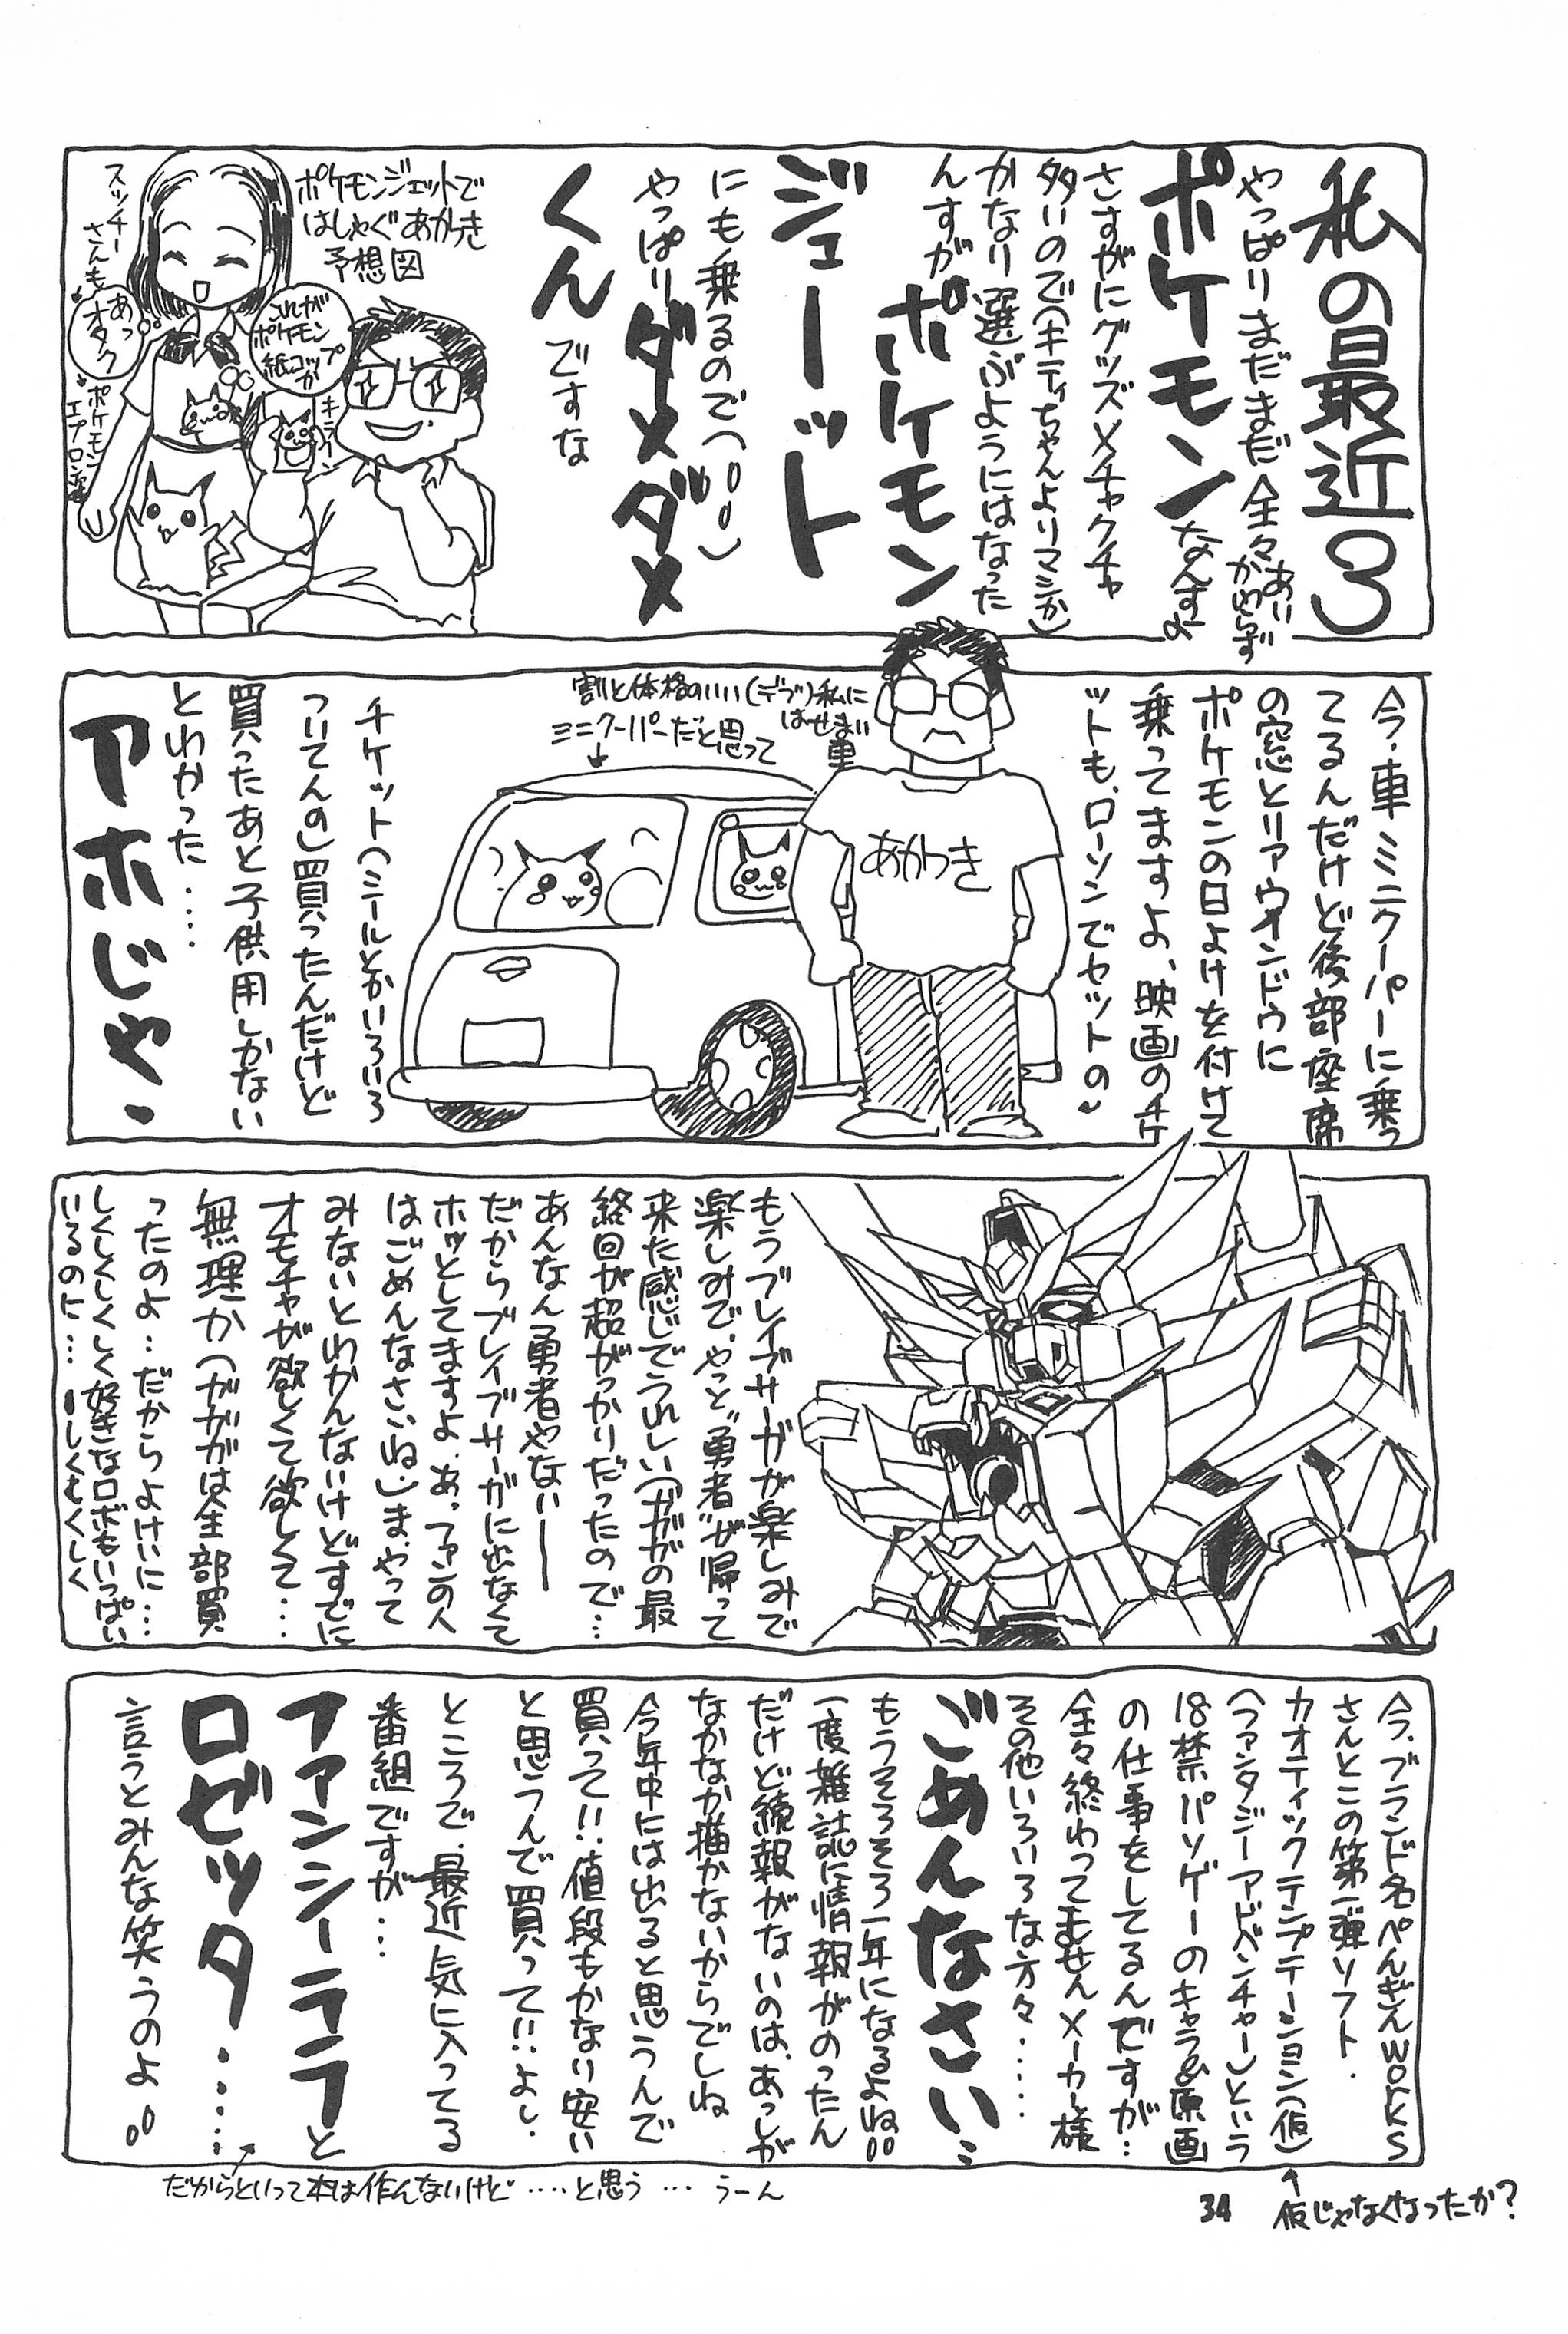 私の最近3
やっぱりまだまだ全々あいかわらず
ポケモンなんすよ
さすがにグッズメチャクチャ
多いので(キティちゃんよりマシか)
かなり選ぶようにはなった
んすがポケモン
ジェーット
にも乗るので(‥)
やっぱりダメダメ
くんですな
ポケモンジェットで
はしゃぐあかつき
予想図
これが
ポケモン
紙コップ
か
キラーン
あっ
オタク
スッチー
さんも
ポケモン
エプロン姿
今、車ミニクーパーに乗っ
てるんだけど後部座席
の窓とリアウインドウに
ポケモンの日よけを付けて
乗ってますよ、映画のチケ
ットも、ローソンでセットの〜
割と体格のいい(デブ)私に
はせまい
車
ミニクーパーだと思って
あかつき
チケット(シールとかいろいろ
ついてんの)買ったんだけど
買ったあと子供用しかない
とわかった‥‥
アホじゃ、
もうブレイブサーガが楽しみで
楽しみで、やっと"勇者"が帰って
来た感じでうれしい(ガガガの最
終回が超がっかりだったので…
あんなん勇者やないーー
だからブレイブサーガに出なくて
ホッとしてますよ、あっファンの人
はごめんなさいね)ま、やって
みないとわかんないけどすでに
オモチャが欲しくて欲しくて…
無理か(ガガガは全部買
ったのよ…だからよけいに…
しくしくしくしく好きなロボもいっぱい
いるのに…
今、ブランド名ぺんぎんworks
さんとこの第一弾ソフト、
カオティックテンプテーション(仮)
(ファンタジーアドベンチャー)という
18禁パソゲーのキャラ&原画
の仕事をしてるんですが…
全々終わってませんメーカー様
その他いろいろな方々‥‥
ごめんなさい…
もうそろそろ一年になるよね
一度雑誌に情報がのったん
だけど続報がないのは、あっしが
なかなか描かないからでしね
今年中には出ると思うんで
買って!!、値段もかなり安い
と思うんで買って!!よし、
ところで、最近気に入ってる
番組ですが…
ファンシーララと
ロゼッタ‥‥
言うとみんな笑うのよ
だからといって本は作んないけど‥‥と思う…うーん
34
↑
仮じゃなくなったか?